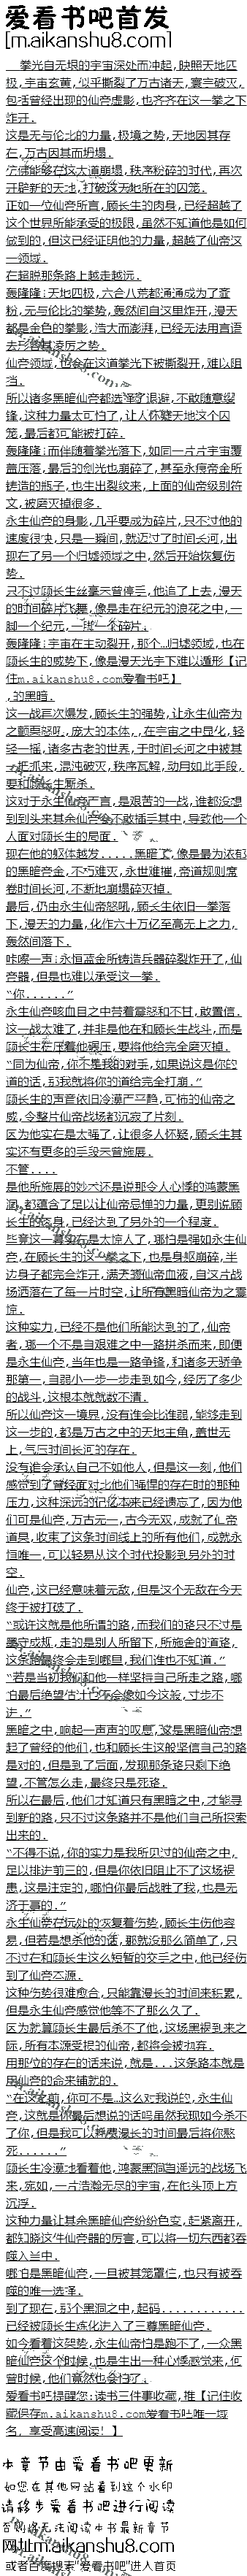 爱看书吧首发
[m.aikanshu8.com]
拳光自无垠的宇宙深处而冲起,映照天地四
极,宇宙玄黄,似乎撕裂了万古诸天,寰宇破灭,
包括曾经出现的仙帝虚影,也齐齐在这一拳之下
炸开.
这是无与伦比的力量,极境之势,天地因其存
在,万古因其而坍塌.
仿佛能够在这大道崩塌,秩序粉碎的时代,再次
开辟新的天地,打破这天地所在的囚笼.
正如一位仙帝所言,顾长生的肉身,已经超越了
这个世界所能承受的极限,虽然不知道他是如何
做到的,但这已经证明他的力量,超越了仙帝这
一领域.
在超脱那条路上越走越远.
轰隆隆:天地四极,六合八荒都通通成为了齑
粉,无与伦比的拳势,轰然间自这里炸开,漫天
都是金色的拳影,浩大而澎湃,已经无法用言语
去形容其凌厉之势.
仙帝领域,也会在这道拳光下被撕裂开,难以阻
挡.
所以诸多黑暗仙帝都选择了退避,不敢随意缨
锋,这种力量太可怕了,让人怀疑天地这个囚
笼,最后都可能被打碎.
轰隆隆:而伴随着拳光落下,如同一片片宇宙覆
盖压落,最后的剑光也崩碎了,甚至永痕帝金所
铸造的瓶子,也生出裂纹来,上面的仙帝级别符
文,被磨灭掉很多.
永生仙帝的身影,几乎要成为碎片,只不过他的
速度很快,只是一瞬间,就迈过了时间长河,出
现在了另一个归墟领域之中,然后开始恢复伤
势.
只不过顾长生丝毫不曾停手,他追了上去,漫天
的时间碎片飞舞,像是走在纪元的浪花之中,一
脚一个纪元,一步一个碎片.
轰隆隆:宇宙在主动裂开,那个...归墟领域,也在
顾长生的威势下,像是漫天光宇下难以遁形【记
住m.aikanshu8.com爱看书吧】
,的黑暗.
这一战再次爆发,顾长生的强势,让永生仙帝为
之颤栗怒吼,庞大的本体,,在宇宙之中显化,轻
轻一摇,诸多古老的世界,于时间长河之中被其
一起抓来,混沌破灭,秩序瓦解,动用如此手段,
要和顾长生厮杀.
这对于永生仙帝而言,是艰苦的一战,谁都没想
到到头来其余仙帝会不敢插手其中,导致他一个
人面对顾长生的局面.
现在他的躯体越发.....黑暗了,像是最为浓郁
的黑暗帝金,不朽难灭,永世难摧,帝道规则席
卷时间长河,不断地崩塌碎灭掉.
最后,仍由永生仙帝怒吼,顾长生依旧一拳落
下,漫天的力量,化作六十万亿至高无上之力,
轰然间落下.
咔嚓一声:永恒蓝金所铸造兵器碎裂炸开了,仙
帝器,但是也难以承受这一拳.
“你......”
永生仙帝咳血目之中带着震怒和不甘,敢置信.
这一战太难了,并非是他在和顾长生战斗,而是
顾长生在压着他碾压,要将他给完全磨灭掉.
“同为仙帝,你不是我的对手,如果说这是你以
道的话,那我就将你的道给完全打崩.”
顾长生的声音依旧冷漠严肃静,可怖的仙帝之
威,令整片仙帝战场都沉寂了片刻.
因为他实在是太强了,让很多人怀疑,顾长生其
实还有更多的手段未曾施展.
不管....
是他所施展的妙术还是说那令人心悸的鸿蒙黑
洞,都蕴含了足以让仙帝忌惮的力量,更别说顾
长生的拳意,已经达到了另外的一个程度.
毕竟这一幕实在是太惊人了,哪怕是强如永生仙
帝,在顾长生的这一拳之下,也是身躯崩碎,半
边身子都完全炸开,满天洒仙帝血液,自这片战
场洒落在了每一片时空,让所有黑暗仙帝为之震
惊.
这种实力,已经不是他们所能达到的了,仙帝
者,哪一个不是自艰难之中一路拼杀而来,即便
是永生仙帝,当年也是一路争锋,和诸多天骄争
那第一,自弱小一步一步走到如今,经历了多少
的战斗,这根本就就数不清.
所以仙帝这一境界,没有谁会比谁弱,能够走到
这一步的,都是万古之中的天地主角,盖世无
上,气压时间长河的存在.
没有谁会承认自己不如他人,但是这一刻,他们
感觉到了曾经面对比他们强悍的存在时的那种
压力,这种深远的记忆本来已经遗忘了,因为他
们可是仙帝,万古无一,古今无双,成就了仙帝
道果,收束了这条时间线上的所有他们,成就永
恒唯一,可以轻易从这个时代投影到另外的时
空.
仙帝,这已经意味着无敌,但是这个无敌在今天
终于被打破了.
“或许这就是他所谓的路,而我们的路只不过是
墨守成规,走的是别人所留下,所施舍的道路,
这条路最终会走到哪里,我们谁也不知道.”
“若是当初我们和他一样坚持自己所走之路,哪
怕最后绝望估计也不会像如今这般,寸步不
进.”
黑暗之中,响起一声声的叹息,这是黑暗仙帝想
起了曾经的他们,也和顾长生这般坚信自己的路
是对的,但是到了后面,发现那条路只剩下绝
望,不管怎么走,最终只是死路.
所以在最后,他们才知道只有黑暗之中,才能寻
到新的路,只不过这条路并不是他们自己所探索
出来的.
“不得不说,你的实力是我所见过的仙帝之中,
足以排进前三的,但是你依旧阻止不了这场祸
患,这是注定的,哪怕你最后战胜了我,也是无
济于事的.”
永生仙帝在远处的恢复着伤势,顾长生伤他容
易,但若是想杀他的话,那就没那么简单了,只
不过在和顾长生这么短暂的交手之中,他已经伤
到了仙帝本源.
这种伤势很难愈合,只能靠漫长的时间来积累,
但是永生仙帝感觉他等不了那么久了.
因为就算顾长生最后杀不了他,这场黑祸到来之
际,所有本源受损的仙帝,都将会被抛弃.
用那位的存在的话来说,就是...这条路本就是
用仙帝的命来铺就的.
“在这之前,你可不是...这么对我说的,永生仙
帝,这就是你最后想说的话吗虽然我现如今杀不
了你,但是我可以将你漫长的时间最后将你熬
死......”
顾长生冷漠地看着他,鸿蒙黑洞自遥远的战场飞
来,宛如,一片浩瀚无尽的宇宙,在他头顶上方
沉浮.
这种力量让其余黑暗仙帝纷纷色变,赶紧离开,
都知晓这件仙帝器的厉害,可以将一切东西都吞
噬入当中.
哪怕是黑暗仙帝,一旦被其笼罩住,也只有被吞
噬的唯一选择.
到了现在,那个黑洞之中,起码............
已经被顾长生炼化进入了三尊黑暗仙帝.
如今看着这架势,永生仙帝怕是跑不了,一众黑
暗仙帝这个时候,也是生出一种心悸感觉来,何
曾时候,他们竟然也会怕了.
爱看书吧提醒您:读书三件事收藏,推【记住收
藏保存m.aikanshu8.com爱看书吧唯一域
名, 享受高速阅读! 】
本章节由爱看书吧更新
如您在其他网站看到这个水印
请移步爱看书吧进行阅读
否则将无法阅读中书最新章节
网址m.aikanshu8.com
或者百度搜索"爱看书吧"进入首页